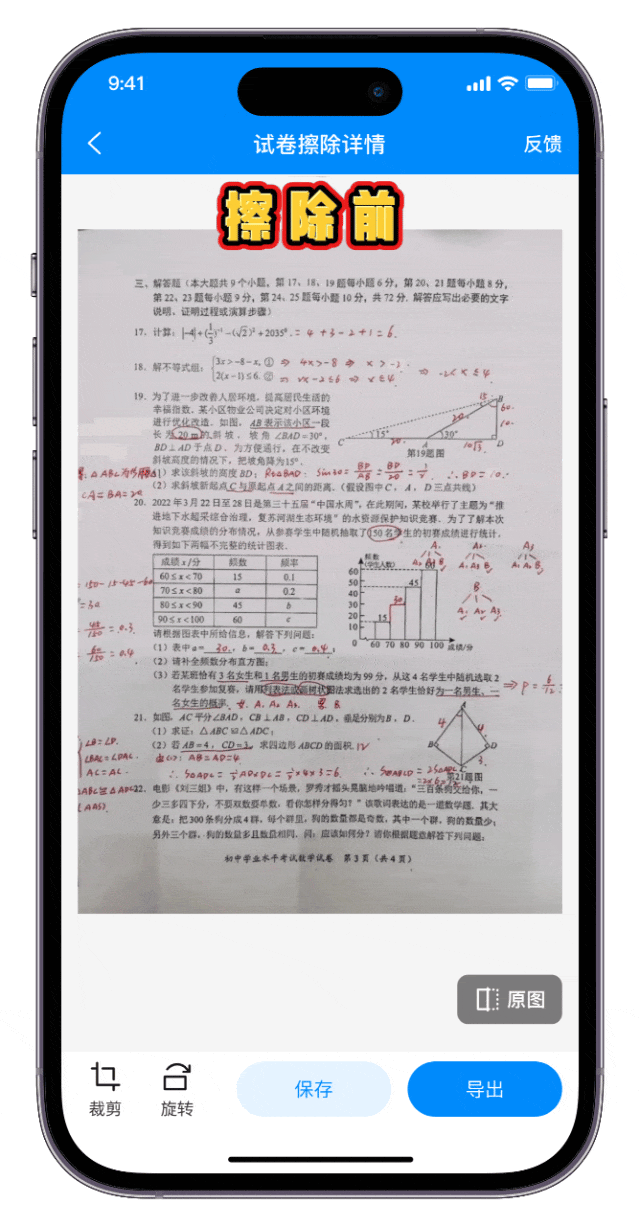 9:41
试卷擦除详情
反馈
擦除前
三、解答题（本大题共9个小题，第17、18、19题每小题6分，第20、21题每小题8分，
第22、23题每小题9分，第24、25题每小题10分，共72分．解答应写出必要的文字
说明、证明过程或演算步骤）
17．计算：|-4|+(1/3)⁻¹-(√2)²+2035⁰．= 4+3-2+1=6.
18．解不等式组：{3x>-8-x, ① ⇒ 4x>-8 ⇒ x>-2
2(x-1)≤6. ② ⇒ 2x-2≤6 ⇒ x≤4. ⇒ -2<x≤4.
19．为了进一步改善人居环境，提高居民生活的
幸福指数．某小区物业公司决定对小区环境
进行优化改造．如图，AB表示该小区一段
长为20 m的斜坡，坡角∠BAD=30°，
BD⊥AD于点D．为方便通行，在不改变
斜坡高度的情况下，把坡角降为15°．
C 15° 20. A 30° D B 15 60. 10. 20. 10√3.
第19题图
（1）求该斜坡的高度BD；Rt△BAD: Sin30=BD/AB=BD/20=1/2 ∴BD=10.
（2）求斜坡新起点C与原起点A之间的距离．（假设图中C，A，D三点共线）
CA=BA=20
20．2022年3月22日至28日是第三十五届“中国水周”，在此期间，某校举行了主题为“推
进地下水超采综合治理，复苏河湖生态环境”的水资源保护知识竞赛．为了了解本次
知识竞赛成绩的分布情况，从参赛学生中随机抽取了150名学生的初赛成绩进行统计，
得到如下两幅不完整的统计图表．
成绩x/分 频数 频率
60≤x<70 15 0.1
70≤x<80 a 0.2
80≤x<90 45 b
90≤x<100 60 c
=150-15-45-60
=30
45/150=0.3.
60/150=0.4
频数
(学生人数)
60
50
40
30
20
10
0 60 70 80 90 100 成绩/分
15 30 45 60
请根据图表中所给信息，解答下列问题：
（1）表中a=30，b=0.3，c=0.4；
（2）请补全频数分布直方图；
（3）若某班恰有3名女生和1名男生的初赛成绩均为99分，从这4名学生中随机选取2
名学生参加复赛，请用列表法或画树状图法求选出的2名学生恰好为一名男生、一
名女生的概率． 女. A₁ A₂ A₃ 男 B
⇒ P=6/12
21．如图，AC平分∠BAD，CB⊥AB，CD⊥AD，垂足分别为B，D．
（1）求证：△ABC≌△ADC；
（2）若AB=4，CD=3，求四边形ABCD的面积．12
∠B=∠D.
∠BAC=∠DAC
AC=AC
△ABC≌△ADC
(AAS)
由(1): AB=AD=4
∴S△ADC=½AD×DC=½×4×3=6.
∴SABCD=2S△ADC
A B C D 4 4. 3.
第21题图
22．电影《刘三姐》中，有这样一个场景，罗秀才摇头晃脑地吟唱道：“三百条狗交给你，一
少三多四下分，不要双数要单数，看你怎样分得匀？”该歌词表达的是一道数学题．其大
意是：把300条狗分成4群，每个群里，狗的数量都是奇数，其中一个群，狗的数量少；
另外三个群，狗的数量多且数量相同．问：应该如何分？请你根据题意解答下列问题：
初中学业水平考试数学试卷 第3页（共4页）
原图
裁剪
旋转
保存
导出